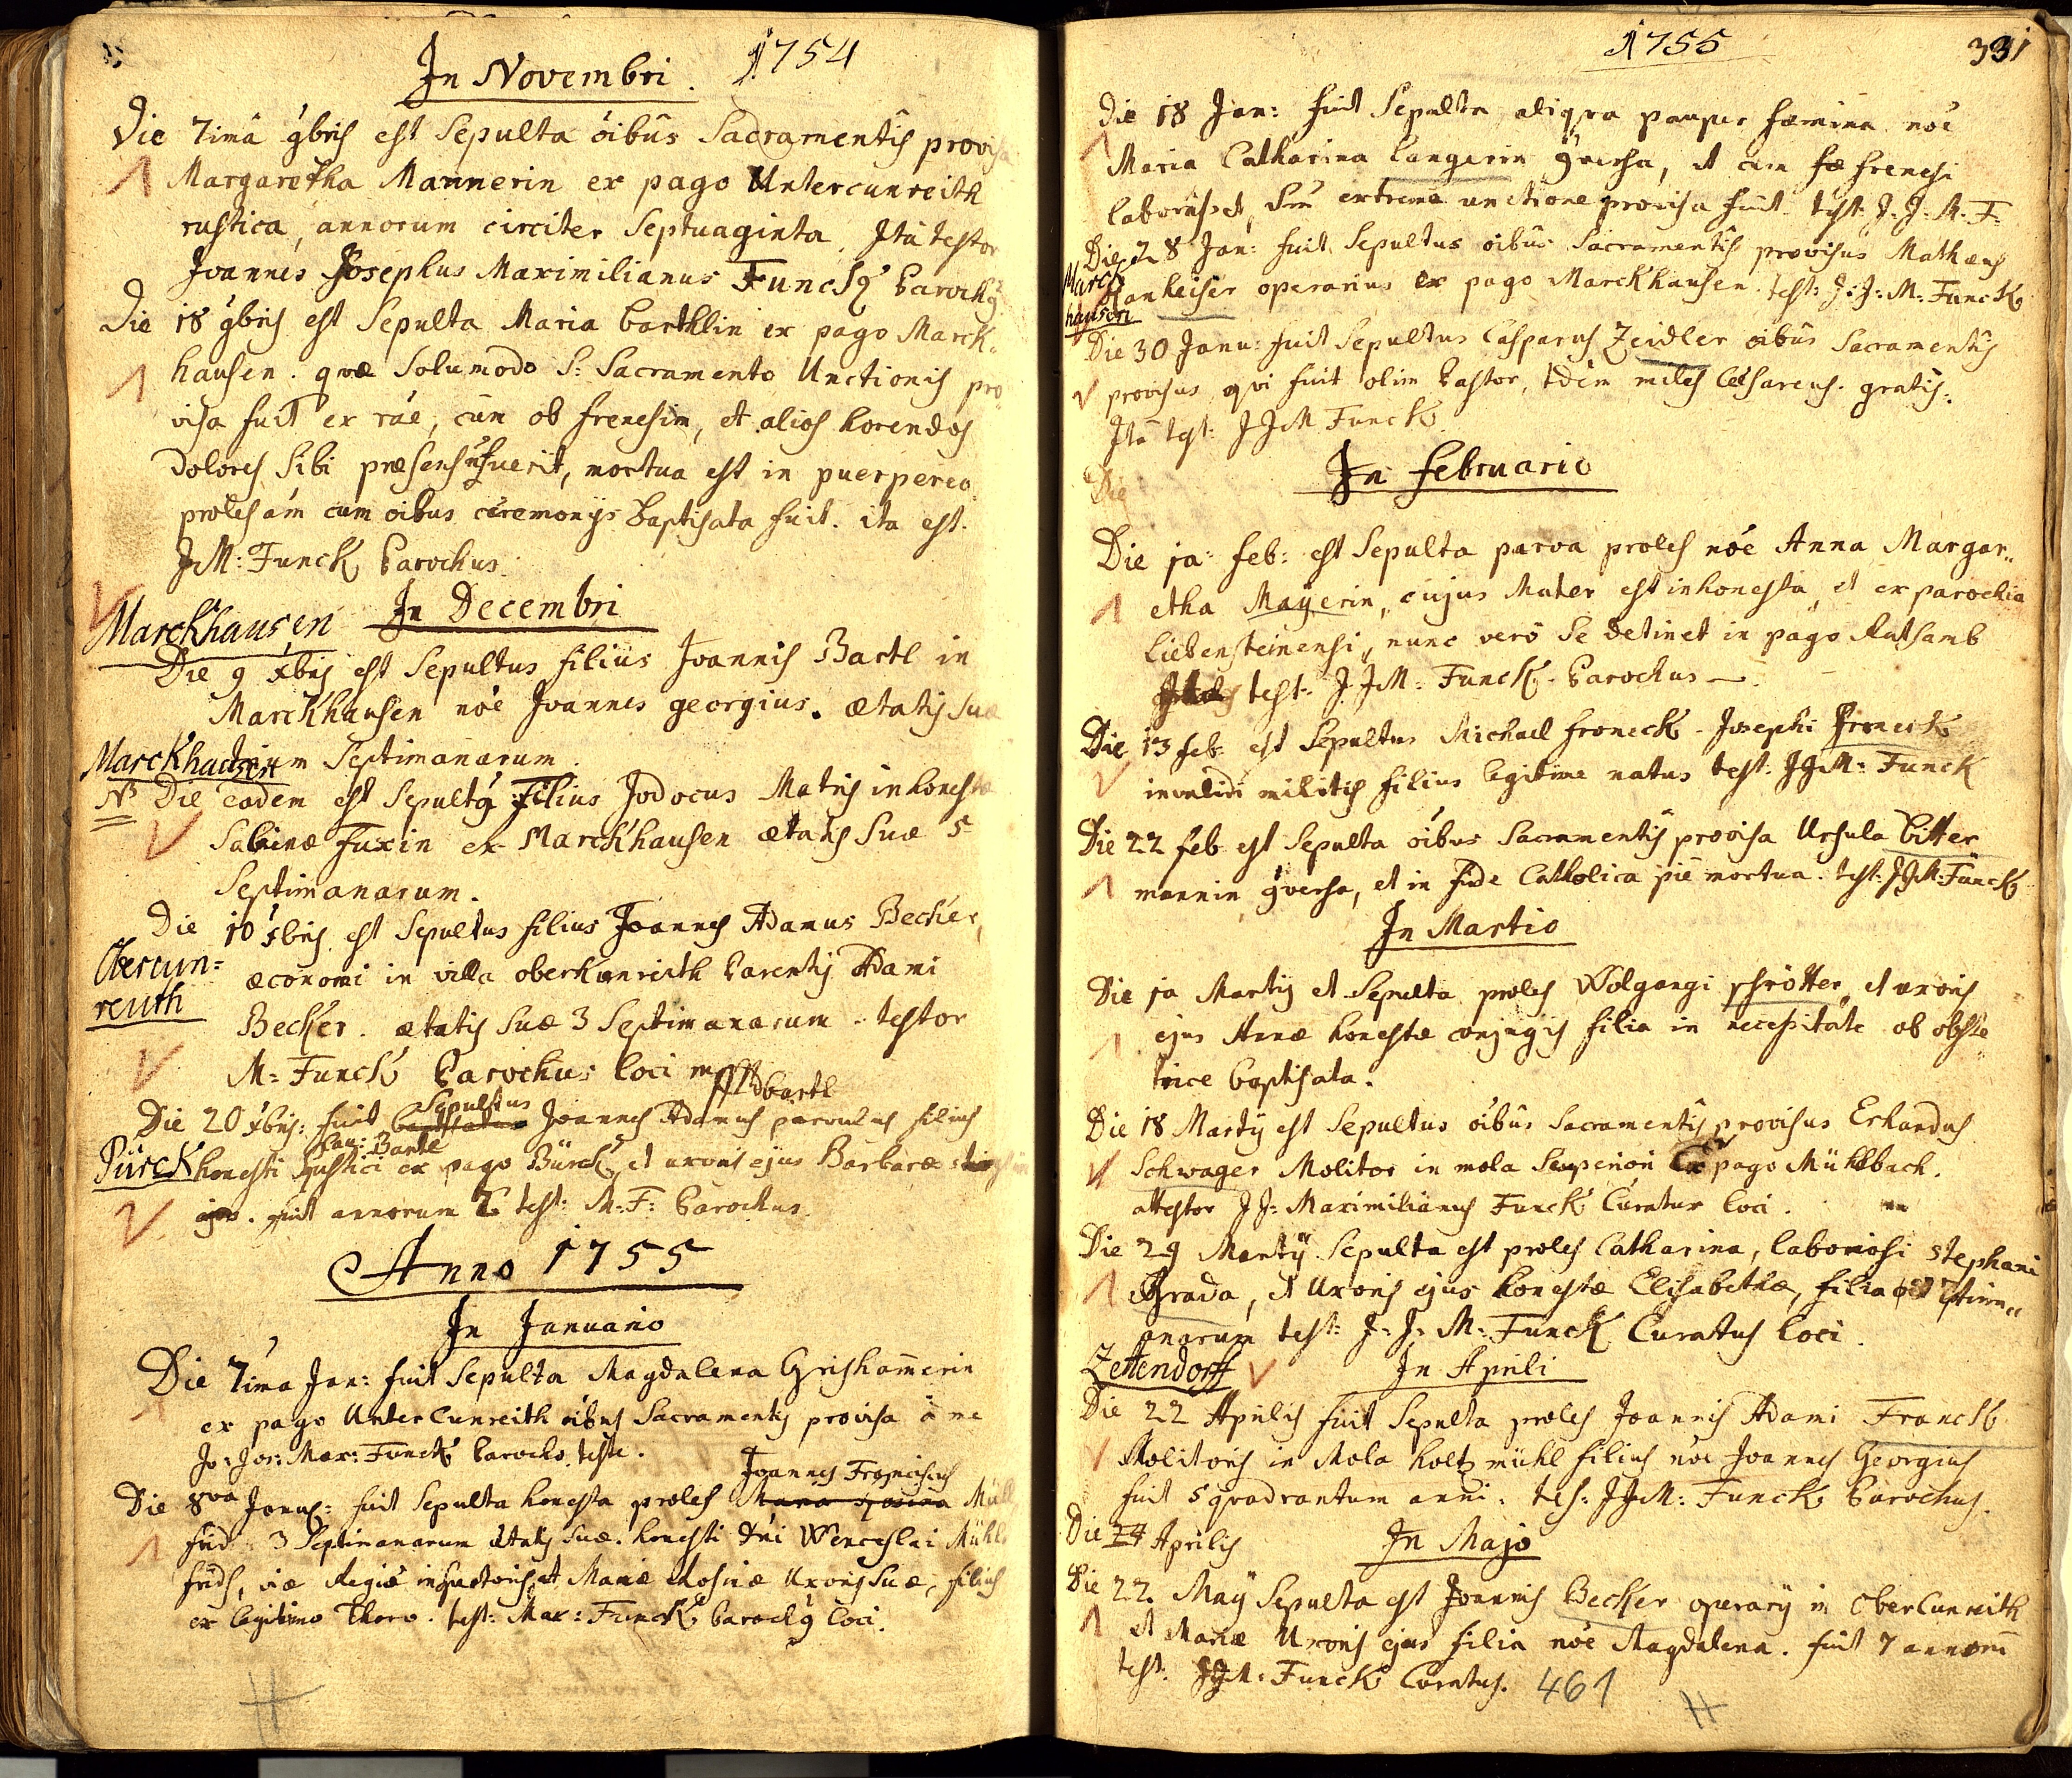 In Novembri. 1754
Die 7imâ 9bris est Sepulta oibûs Sacramentis provisa
Margaretha Mannerin ex pago Untercunreith
rustica, annorum circiter Septuaginta. Ita testor
Joannes Josephus Maximilianus Funck Parochq
Die 18 9bris est Sepulta Maria Barthlin ex pago Marck-
hausen. quæ Solumodo S: Sacramento Unctionis pro-
visa fuit ex rae, cum ob frenesim, et alios horendos
dolores sibi præsens fuerit, mortua est in puerpereo
proles am cum oibus ceremonijs baptisata fuit. ita est.
JM: Funck Parochus.
Marckhausen In Decembri
Die 9 Xbris est Sepultus filius Joannis Bartl in
Marckhausen noe Joannes georgius. ætatis suæ
Marckhausen Septimanarum.
NB Die eadem est Sepultq Filius Jodocus Matris inhonestæ
Sabinæ Fuxin ex Marckhausen ætatis Suæ 5
Septimanarum.
Die 10 Xbris est Sepultus filius Joannes Adamus Becker,
Obercun=
reuth
œconomi in villa oberkunreith Parentis Adami
Becker. ætatis suæ 3 Septimanarum. testor
M: Funck Parochus loci
Bartl
Sepultus
Die 20 Xbris: fuit baptisatus Joannes Adamus parvulus filius
Bartl
Pürck honesti rustici ex pago Bürck, et uxoris ejus Barbaræ
fuit annorum 2 test: M: F: Parochus
Anno 1755
In Januario
Die 7ima Jan: fuit Sepulta Magdalena Grishamerin
ex pago Untercunreith oibus Sacramentis provisa à me
Jo: Jos: Max: Funck Parocho teste.
Joannes Franciscus
Die 8va Janu: fuit Sepulta honesta proles Maria Mühl
frid 3 Septimanarum ætatis suæ. honesti Dni Wenceslai Mühl
frids, viæ Regiæ inspectoris, et Mariæ Rosinæ Uxoris Suæ, filius
ex legitimo thoro. test: Max: Funck Parochq loci.
1755 331
Die 18 Jan: fuit Sepulta aliqva pauper fæmina noe
Maria Catharina Langerin 9versa, et cum frenesi
laborasset, extrema unctione provisa fuit. test: J: J: M: F:
Die 28 Jan: fuit Sepultus oibus Sacramentis provisus Mathæus
Marck
hausen
Hanheiser operarius ex pago Marckhausen. test: J: J: M: Funck
Die 30 Janu: fuit Sepultus Casparus Zeidler oibus Sacramentis
provisus, qvi fuit olim Pastor, miles Cæsareus. gratis.
Ita test: JJM Funck
Die In Februario
Die 1a feb: est Sepulta parva proles noe Anna Margar-
etha Mayerin, cujus Mater est inhonesta, et ex parochia
Liebensteinensi, nunc vero se detinet in pago Rutsamb
test: J.JM: Funck. Parochus
Die 13 feb: est Sepultus Michael froneck. Josephi froneck
invalidi militis filius legitime natus test: JJM: Funck
Die 22 feb est Sepulta oibus Sacramentis provisa Ursula Bitter
mannin 9versa, et in fide Catholica pie mortua. test: JJM: Funck
In Martio
Die 1a Martij et Sepulta proles Wolgangi schrötter, et uxoris
ejus Annæ honestæ conjugis filia in necessitate ob obste
trice baptisata.
Die 18 Martij est Sepultus oibus Sacramentis provisus Erhardus
Schwager Molitor in mola Superiori Ex pago Mühlbach.
attestor JJ: Maximilianus Funck Curatus loci.
Die 29 Martij Sepulta est proles Catharina, laboriosi Stephani
Grada, et Uxoris ejus honestæ Elisabethæ, filia
anarum test: J: J: M: Funck Curatus loci
Zettendorff In Aprili
Die 22 Aprilis fuit Sepulta proles Joannis Adami Franck
Molitoris in Mola holtzmühl filius noe Joannes Georgius
fuit 5 quadrantum anni. tes: JJM: Funck Parochus.
Die 24 Aprilis In Majo
Die 22. Maij Sepulta est Joannis Becker operarij in Obercunreith
et Mariæ Uxoris ejus filia noe Magdalena. fuit 7 annorum
test. JJM: Funck Curatus. 461